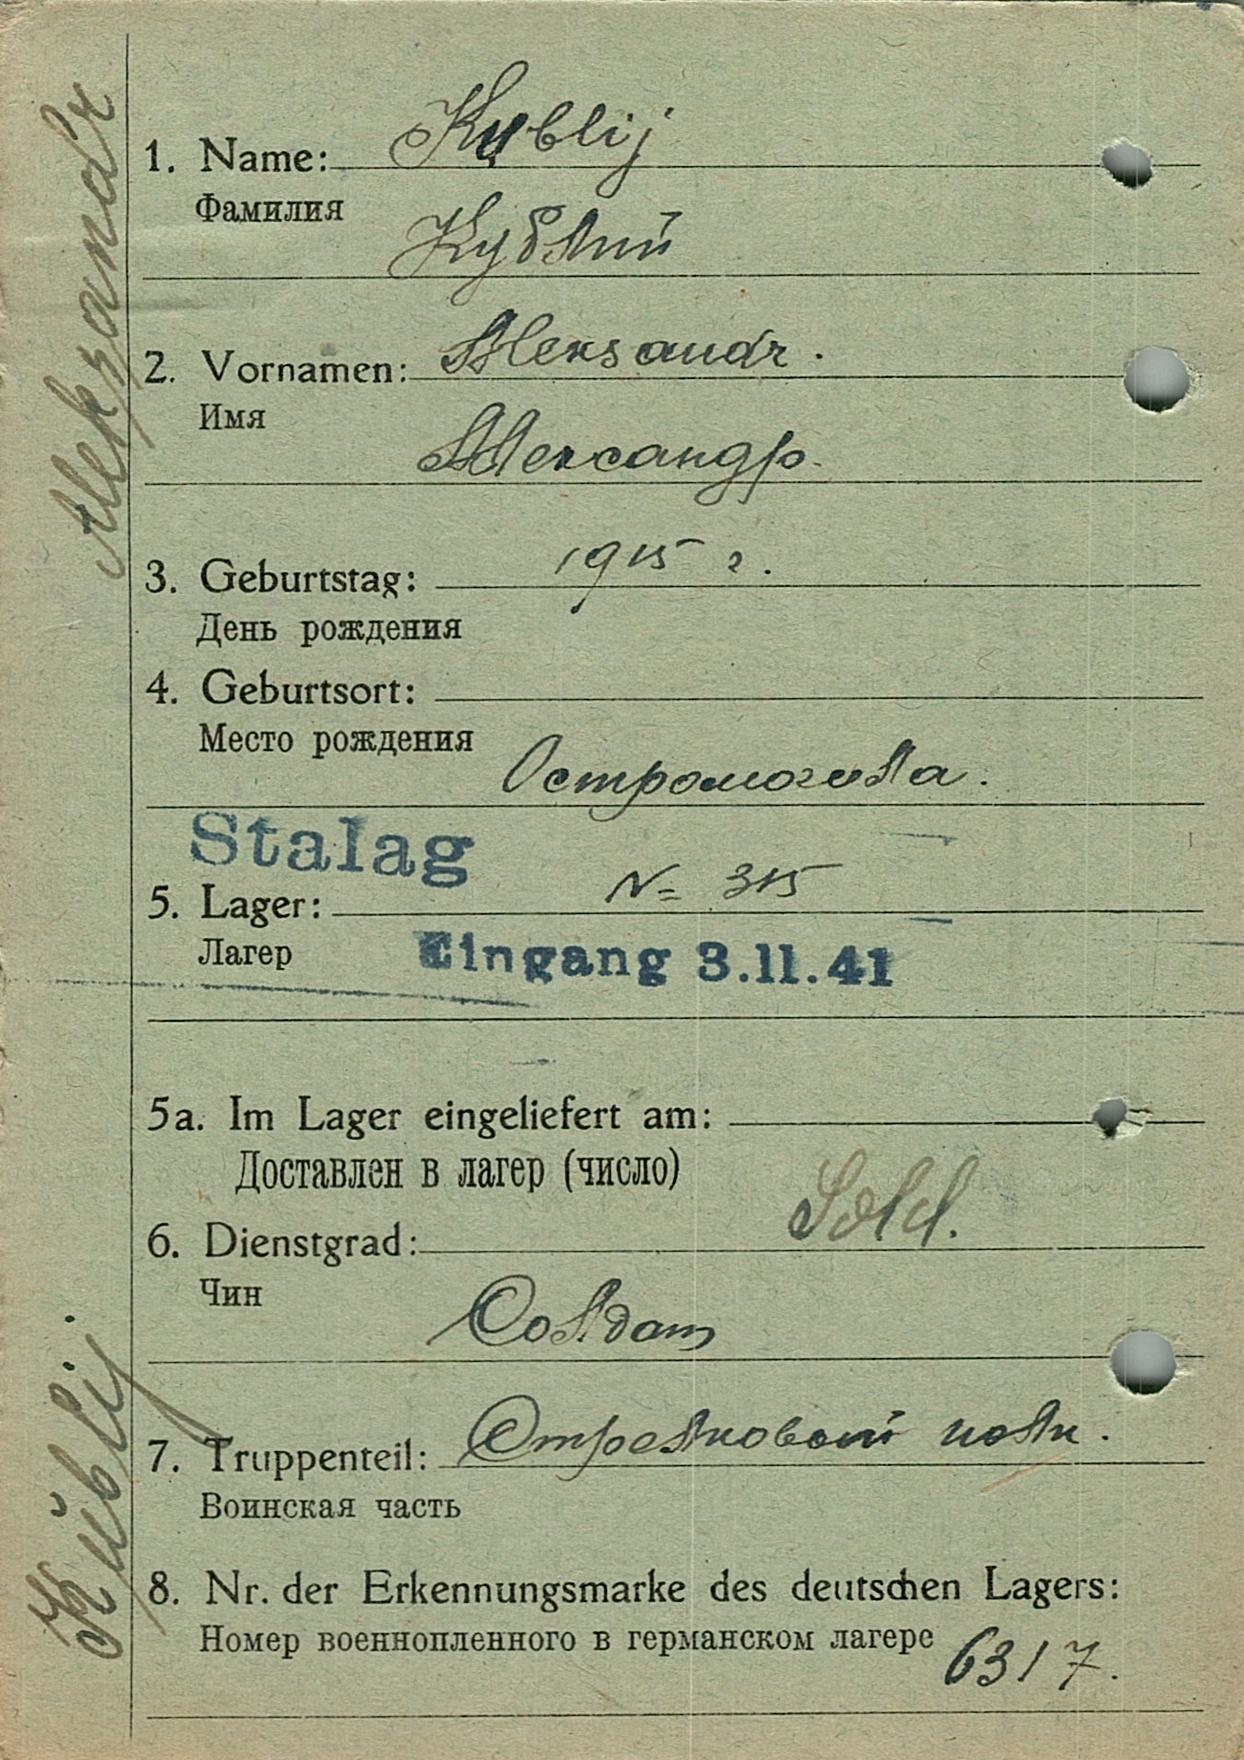 Kublij
1. Name:
Фамилия
Кублий
2. Vornamen: Aleksandr.
Имя
Александр.
3. Geburtstag: 1915 г.
День рождения
4. Geburtsort:
Место рождения
Остромогила.
Stalag
5. Lager: № 315
Лагер Eingang 3.11.41
5a. Im Lager eingeliefert am:
Доставлен в лагер (число)
6. Dienstgrad: Sold.
Чин
Солдат
7. Truppenteil: Стрелковой полк.
Воинская часть
8. Nr. der Erkennungsmarke des deutschen Lagers:
Номер военнопленного в германском лагере 6317.
Kublij Aleksandr